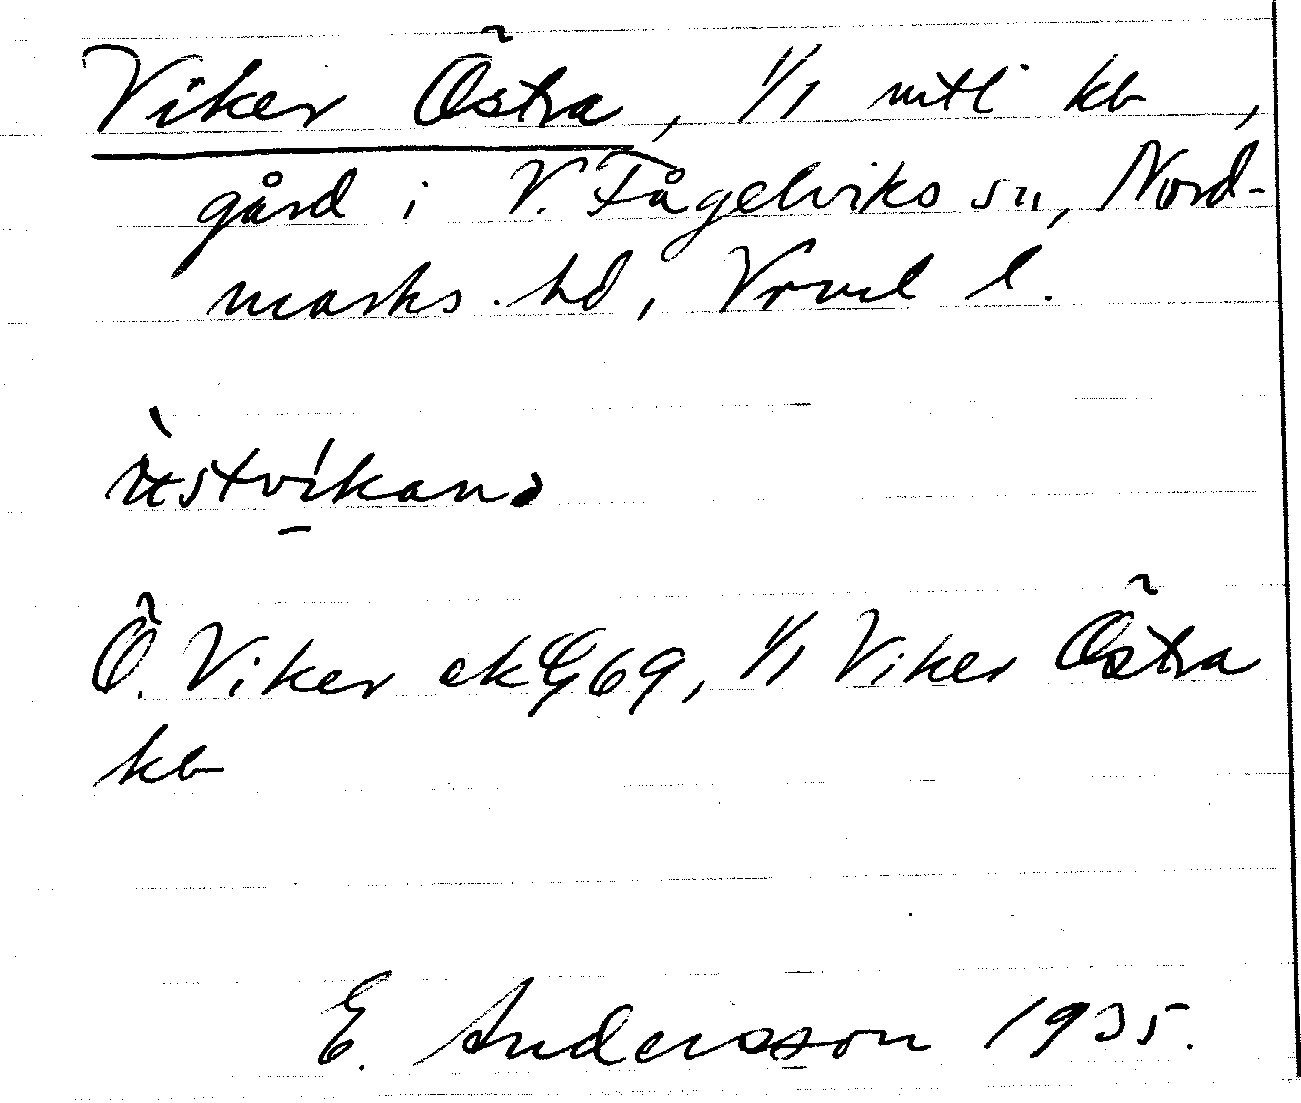 Viker Östra, 1/1 mtl kb,
gård i V. Fågelviks sn, Nord-
marks hd, Vrml l.
Ö. Viker ek 69, 1/1 Viker Östra
kb
E. Andersson 1935.